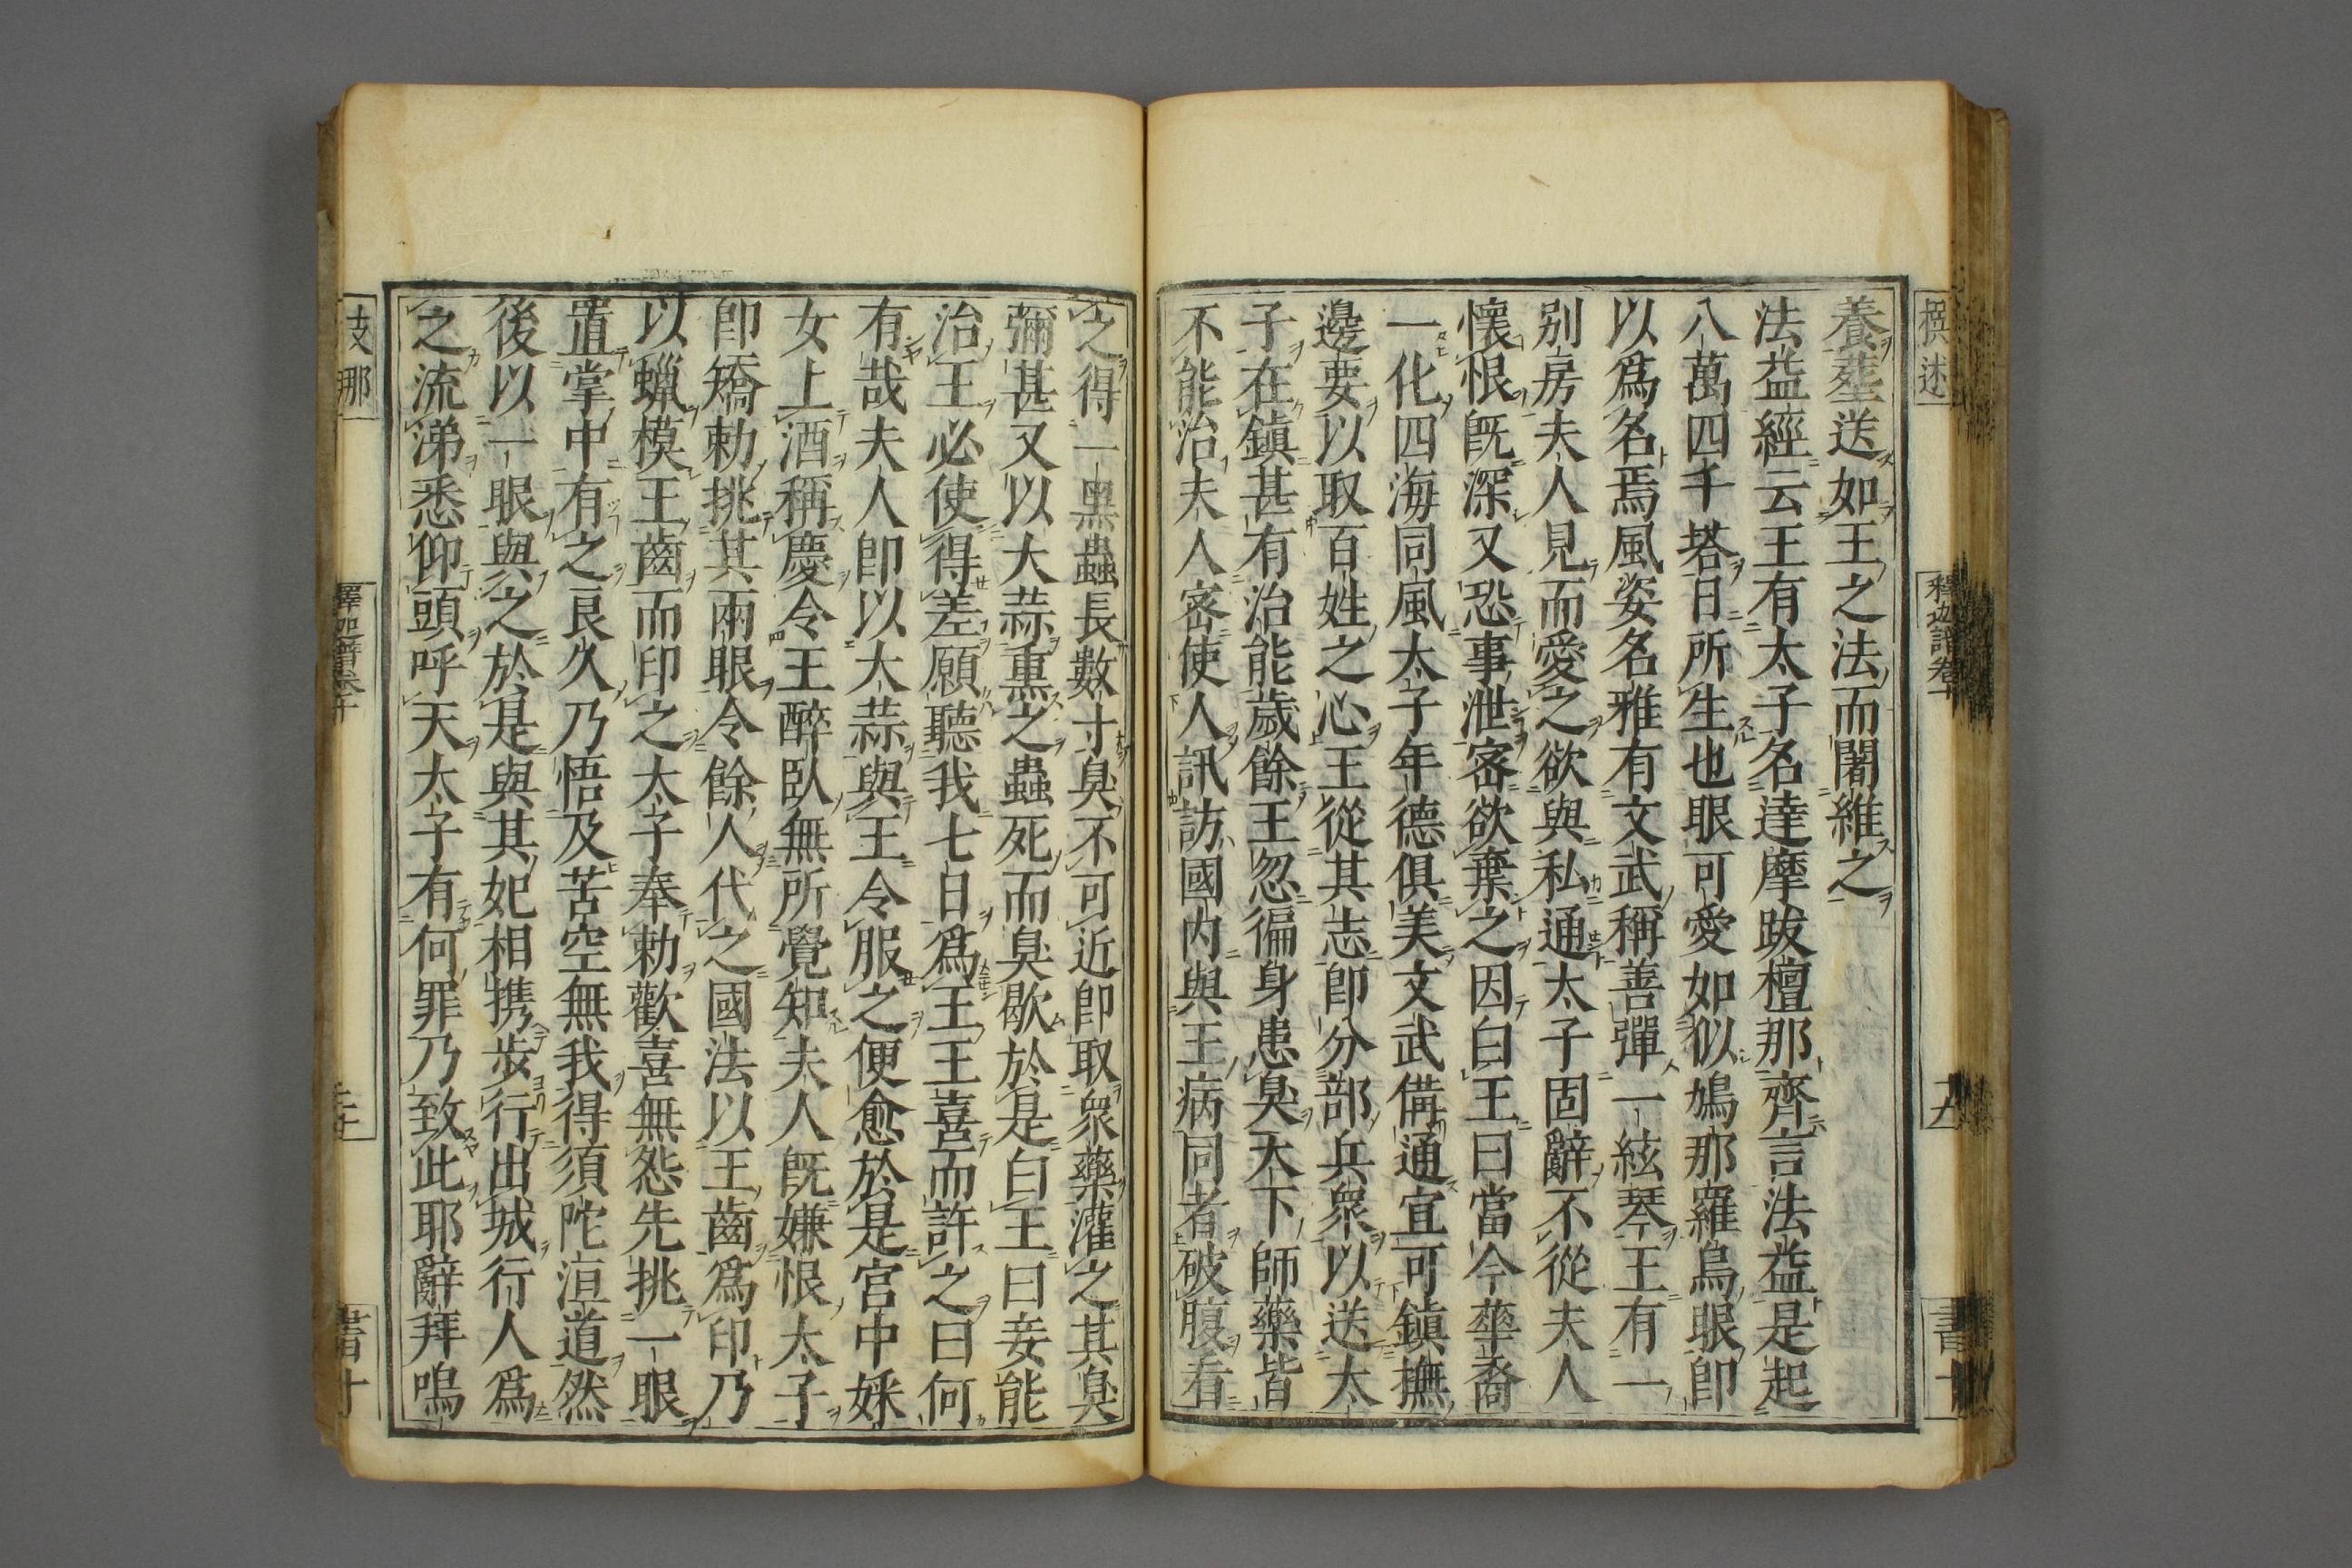 養葬送如王之法而闍維之
法益經云王有太子名達摩跋檀那齊言法益是起
八萬四千塔日所生也眼可愛如似鳩那羅鳥眼卽
以爲名焉風姿名雅有文武稱善彈一絃琴王有一
別房夫人見而愛之欲與私通太子固辭不從夫人
懷恨旣深又恐事泄密欲棄之因白王曰當今華裔
一化四海同風太子年德俱美文武備通宜可鎭撫
邊要以取百姓之心王從其志卽分部兵衆以送太
子在鎭甚有治能歲餘王忽徧身患臭天下師藥皆
不能治夫人密使人訊訪國内與王病同者破腹看
之得一黑蟲長數寸臭不可近卽取衆藥灌之其臭
彌甚又以大蒜熏之蟲死而臭歇於是白王曰妾能
治王必使得差願聽我七日爲王王喜而許之曰何
有哉夫人卽以大蒜與王令服之便愈於是宮中婇
女上酒稱慶令王醉臥無所覺知夫人旣嫌恨太子
卽矯勅挑其兩眼令餘人代之國法以王齒爲印乃
以蠟模王齒而印之太子奉勅歡喜無怨先挑一眼
置掌中有之良久乃悟及苦空無我得須陀洹道然
後以一眼與之於是與其妃相携步行出城行人爲
之流涕悉仰頭呼天太子有何罪乃致此耶辭拜嗚
撰述
釋迦譜卷十
十九
書十
支那
釋迦譜卷十
書十